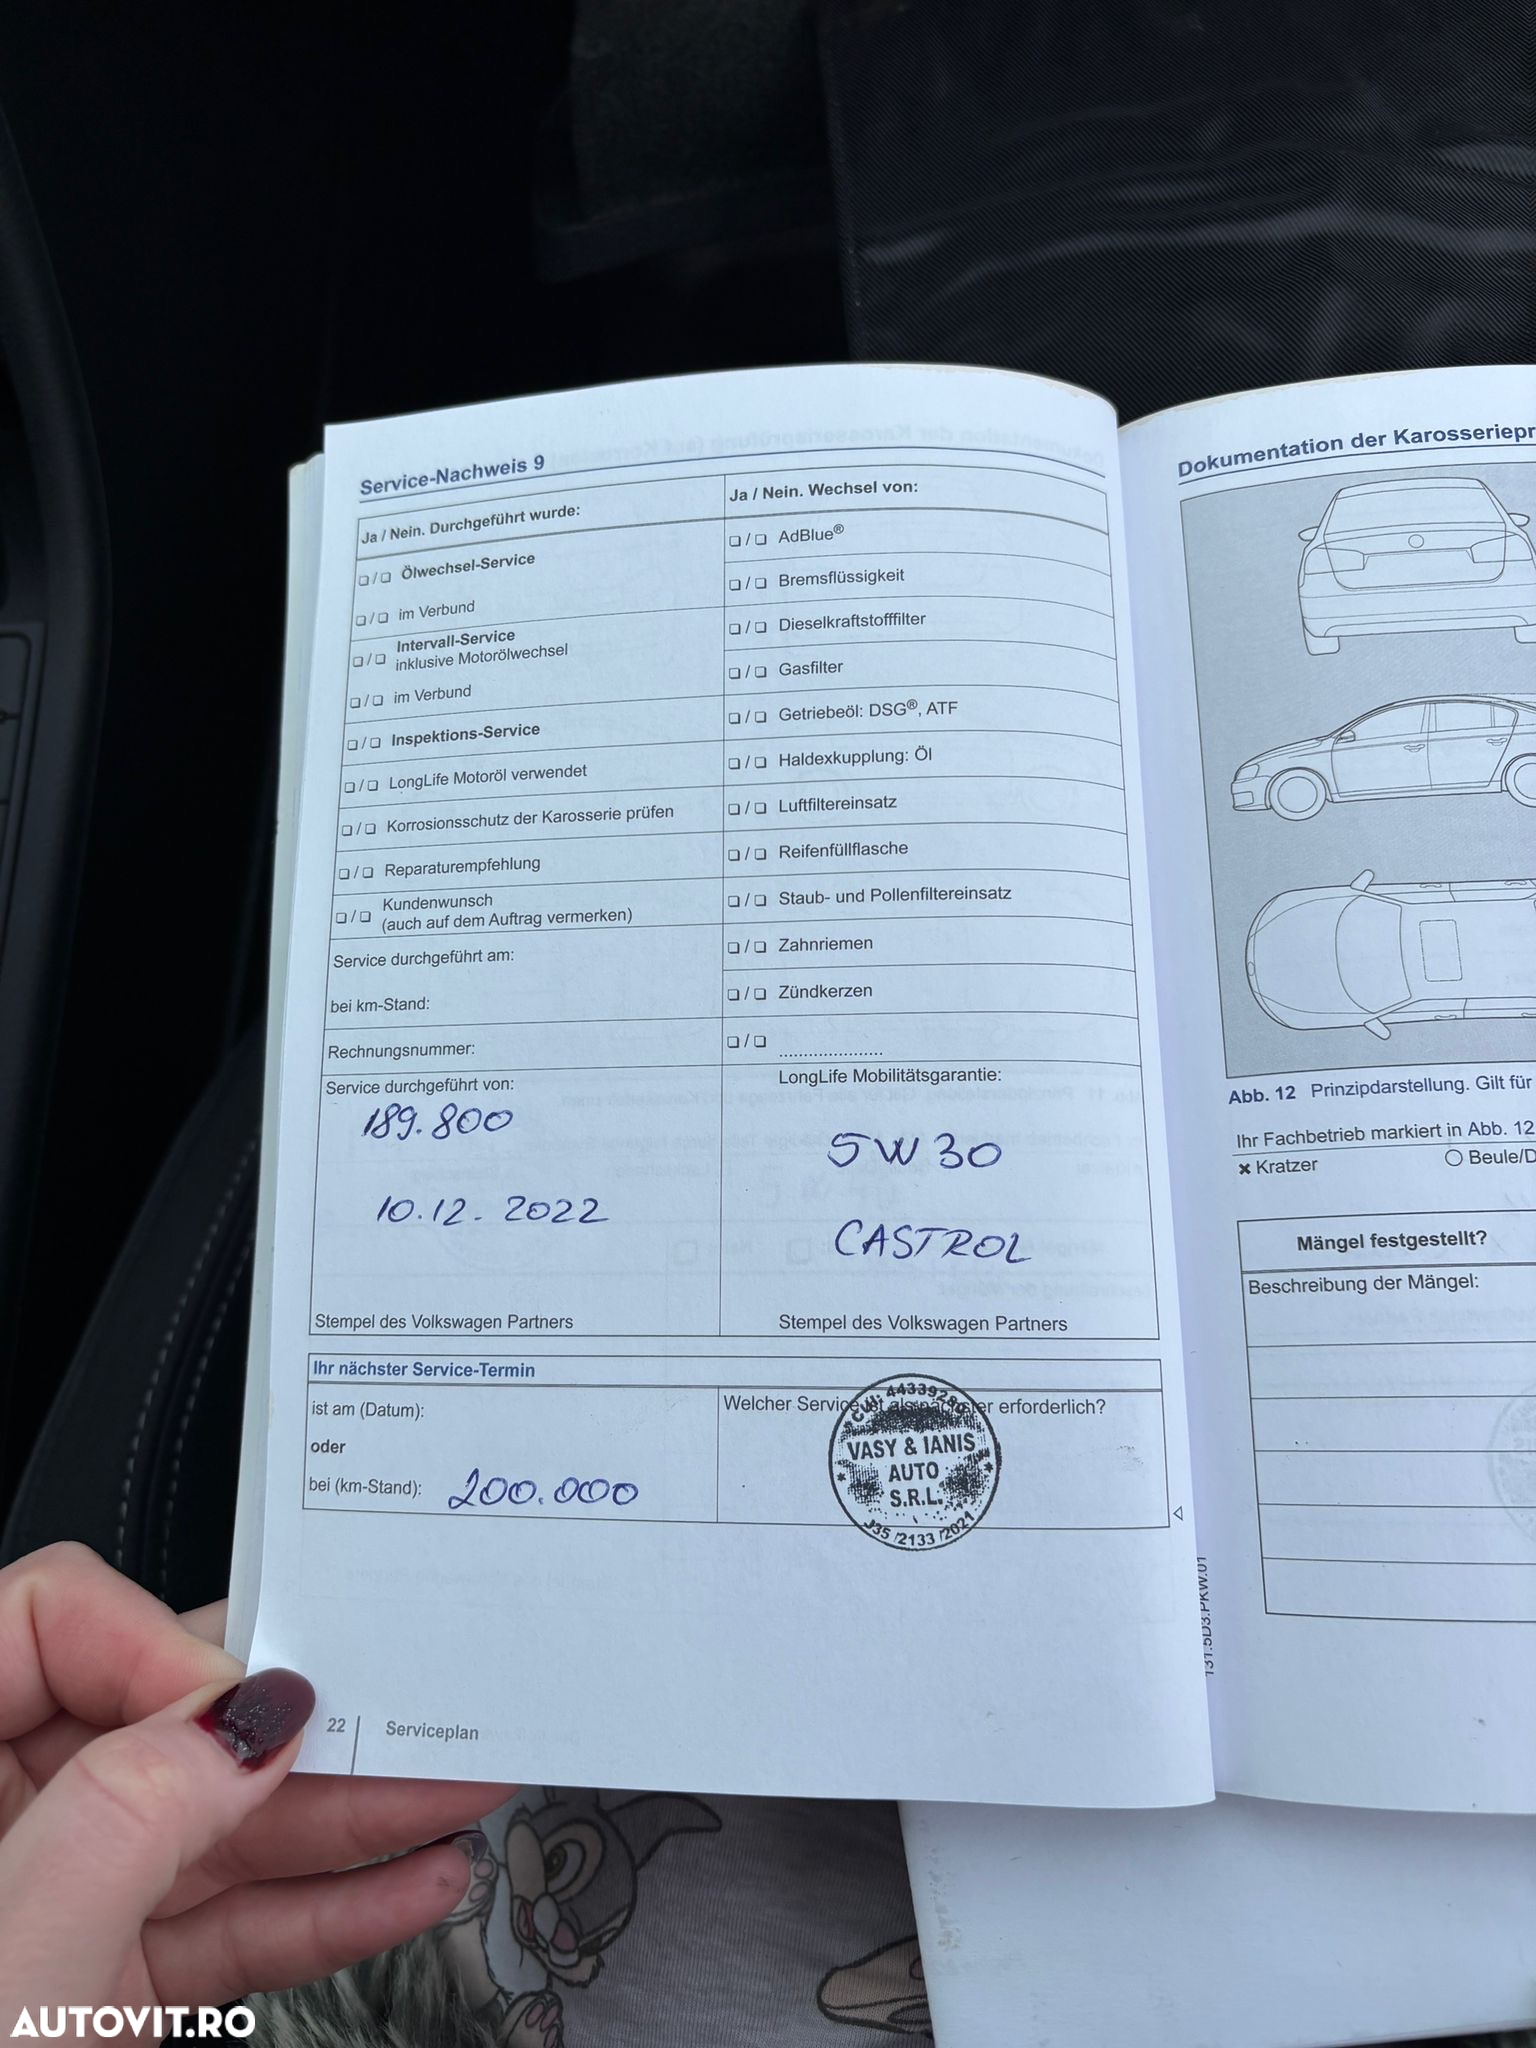 Service-Nachweis 9
Ja / Nein. Durchgeführt wurde:
❏ / ❏ Ölwechsel-Service
❏ / ❏ im Verbund
❏ / ❏ Intervall-Service
inklusive Motorölwechsel
❏ / ❏ im Verbund
❏ / ❏ Inspektions-Service
❏ / ❏ LongLife Motoröl verwendet
❏ / ❏ Korrosionsschutz der Karosserie prüfen
❏ / ❏ Reparaturempfehlung
❏ / ❏ Kundenwunsch
(auch auf dem Auftrag vermerken)
Service durchgeführt am:
bei km-Stand:
Rechnungsnummer:
Service durchgeführt von:
189.800
10.12.2022
Stempel des Volkswagen Partners
Ja / Nein. Wechsel von:
❏ / ❏ AdBlue®
❏ / ❏ Bremsflüssigkeit
❏ / ❏ Dieselkraftstofffilter
❏ / ❏ Gasfilter
❏ / ❏ Getriebeöl: DSG®, ATF
❏ / ❏ Haldexkupplung: Öl
❏ / ❏ Luftfiltereinsatz
❏ / ❏ Reifenfüllflasche
❏ / ❏ Staub- und Pollenfiltereinsatz
❏ / ❏ Zahnriemen
❏ / ❏ Zündkerzen
❏ / ❏ .....................
LongLife Mobilitätsgarantie:
5W30
CASTROL
Stempel des Volkswagen Partners
Ihr nächster Service-Termin
ist am (Datum):
oder
bei (km-Stand): 200.000
Welcher Service ist als nächster erforderlich?
VASY & IANIS
AUTO
S.R.L.
J35 /2133 /2021
22 Serviceplan
Dokumentation der
Abb. 12 Prinzipdarstellung. Gilt für
Ihr Fachbetrieb markiert in Abb. 12
✖ Kratzer
Mängel festgestellt?
Beschreibung der Mängel:
AUTOVIT.RO